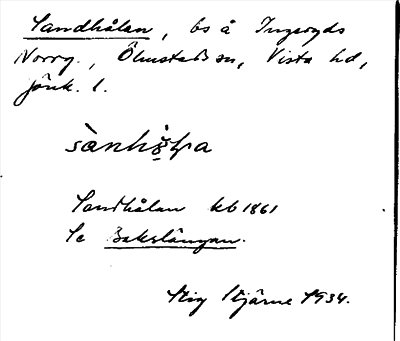 Sandhålan, bs å Ingeryds
Norrg., Ölmstads sn, Vista hd,
Jönk. l.
sànhò̤ɫa
Sandhålan kb 1861
Se Bakslängan.
Stig Stjärne 1934.